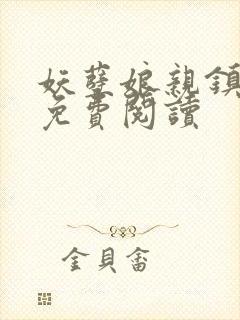 妖孽娘親
免費閱讀
金貝畬